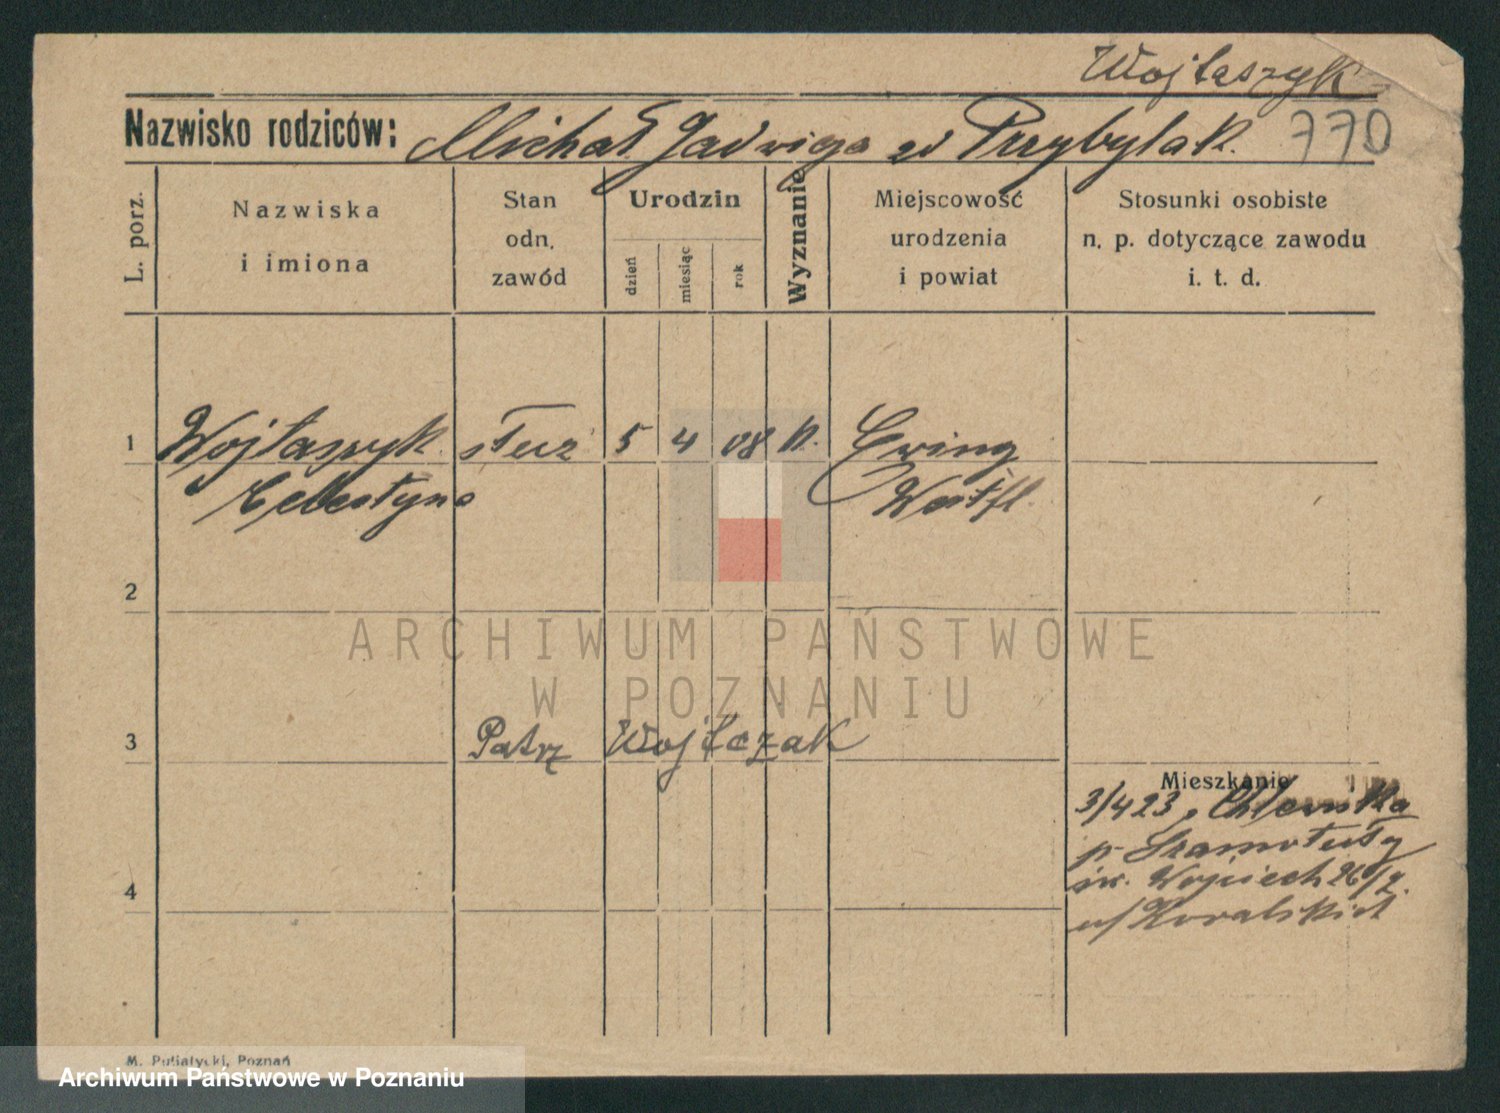 Wojtaszyk
Nazwisko rodziców: Michał Jadwiga zd Przybylak.
770
L. porz.
Nazwiska
i imiona
Stan
odn.
zawód
Urodzin
dzień
miesiąc
rok
Wyznanie
Miejscowość
urodzenia
i powiat
Stosunki osobiste
n. p. dotyczące zawodu
i. t. d.
1 Wojtaszyk służ 5 4 08 k. Eving
Celestyna Westfl.
2
ARCHIWUM PAŃSTWOWE
W POZNANIU
3 Patrz Wojtczak
Mieszkanie
3/4 23
p. Szamotuły
św. Wojciech 26/7.
u/ Kowalskich
4
M. Putiatycki, Poznań
Archiwum Państwowe w Poznaniu